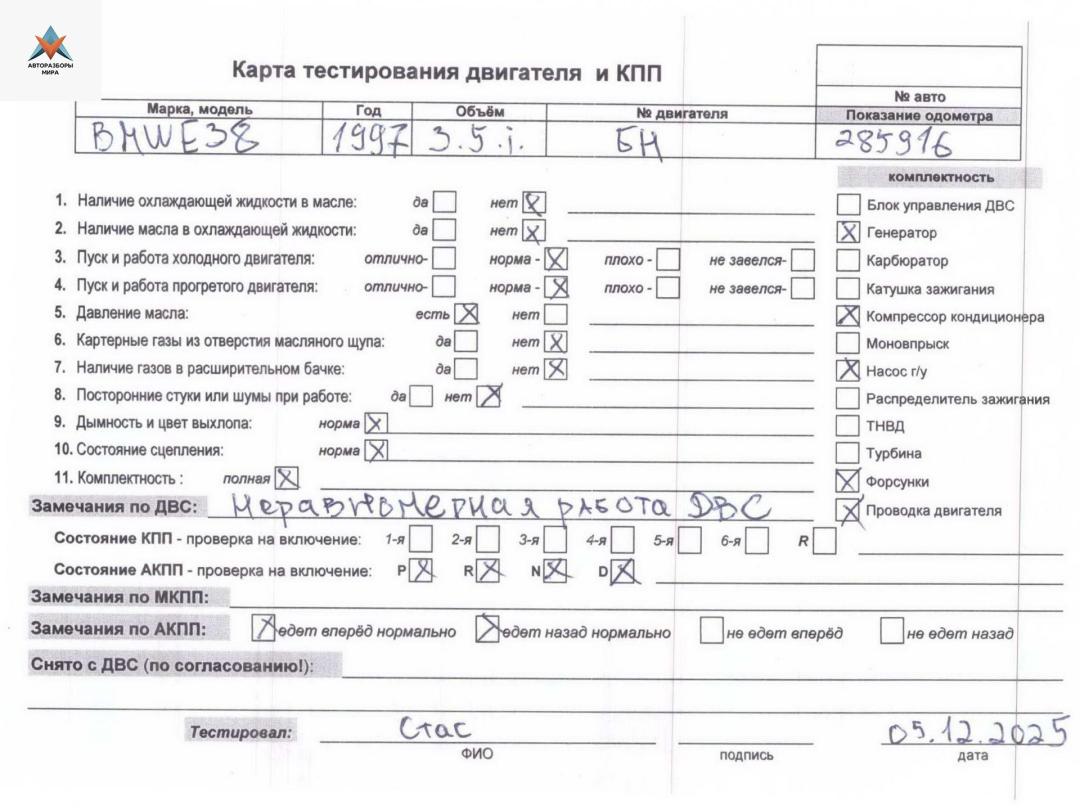 АВТОРАЗБОРЫ
МИРА
Карта тестирования двигателя и КПП
№ авто
Марка, модель Год Объём № двигателя Показание одометра
BMWE38 1997 3.5.i. БН 285916
комплектность
1. Наличие охлаждающей жидкости в масле: да нет
Блок управления ДВС
2. Наличие масла в охлаждающей жидкости: да нет
Генератор
3. Пуск и работа холодного двигателя: отлично- норма - плохо - не завелся-
Карбюратор
4. Пуск и работа прогретого двигателя: отлично- норма - плохо - не завелся-
Катушка зажигания
5. Давление масла: есть нет
Компрессор кондиционера
6. Картерные газы из отверстия масляного щупа: да нет
Моновпрыск
7. Наличие газов в расширительном бачке: да нет
Насос г/у
8. Посторонние стуки или шумы при работе: да нет
Распределитель зажигания
9. Дымность и цвет выхлопа: норма
ТНВД
10. Состояние сцепления: норма
Турбина
11. Комплектность : полная
Форсунки
Замечания по ДВС: Неравномерная работа ДВС
Проводка двигателя
Состояние КПП - проверка на включение: 1-я 2-я 3-я 4-я 5-я 6-я R
Состояние АКПП - проверка на включение: P R N D
Замечания по МКПП:
Замечания по АКПП: едет вперёд нормально едет назад нормально не едет вперёд не едет назад
Снято с ДВС (по согласованию!):
Тестировал: Стас 05.12.2025
ФИО подпись дата